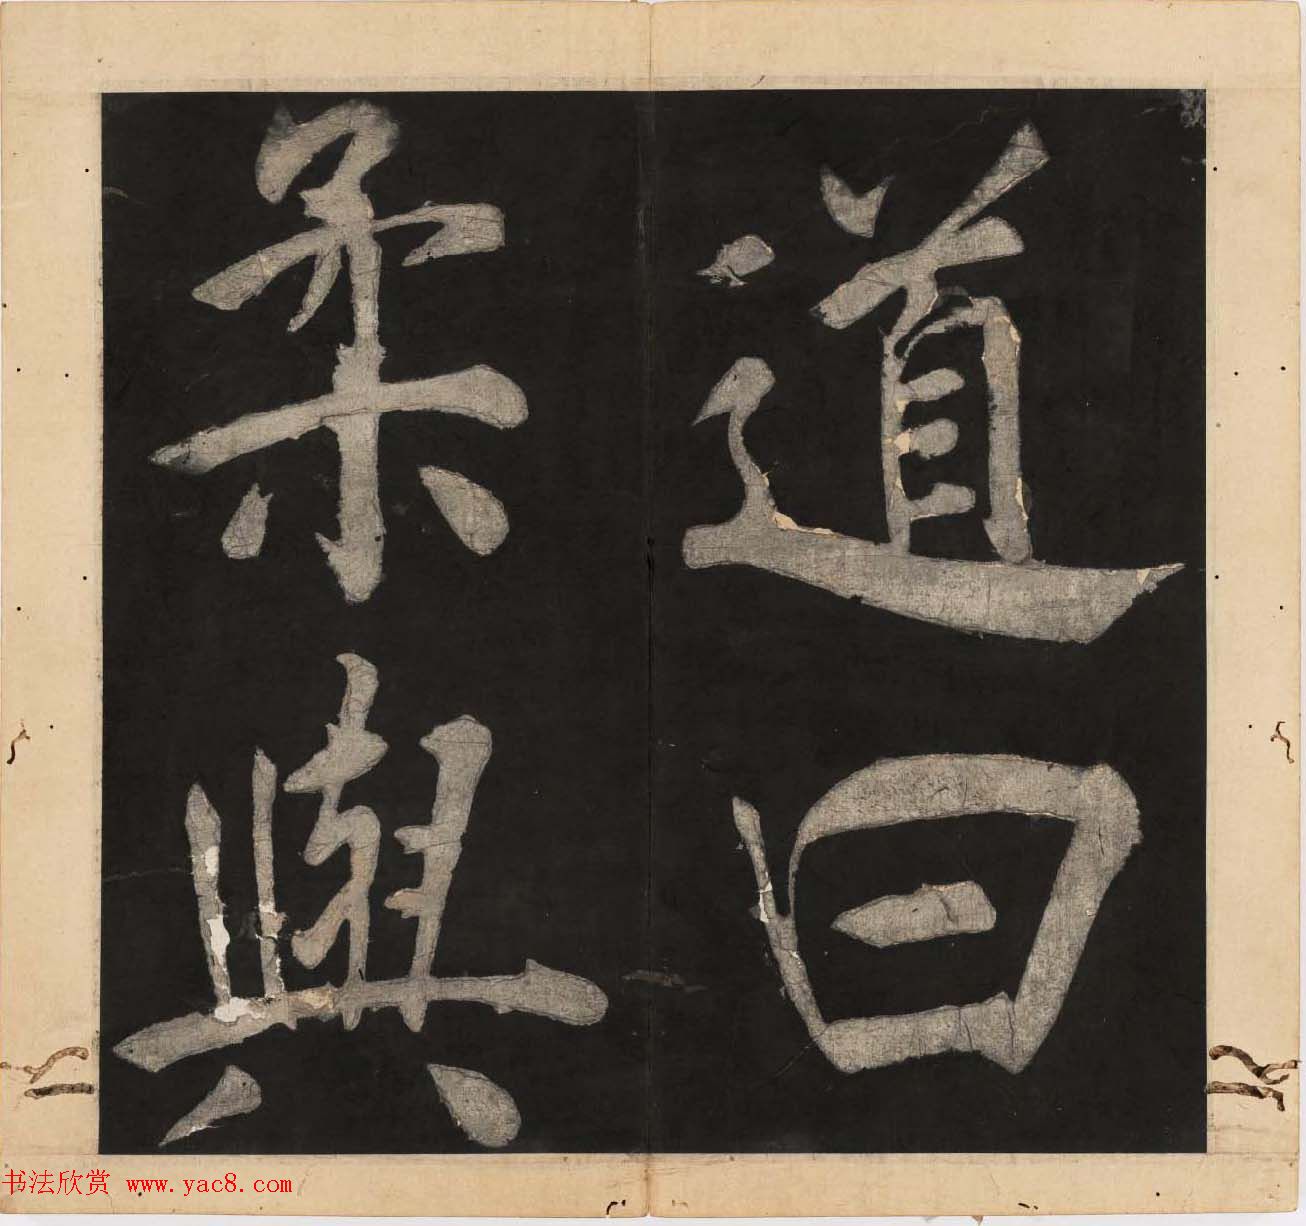 道曰
柔與
书法欣赏 www.yac8.com